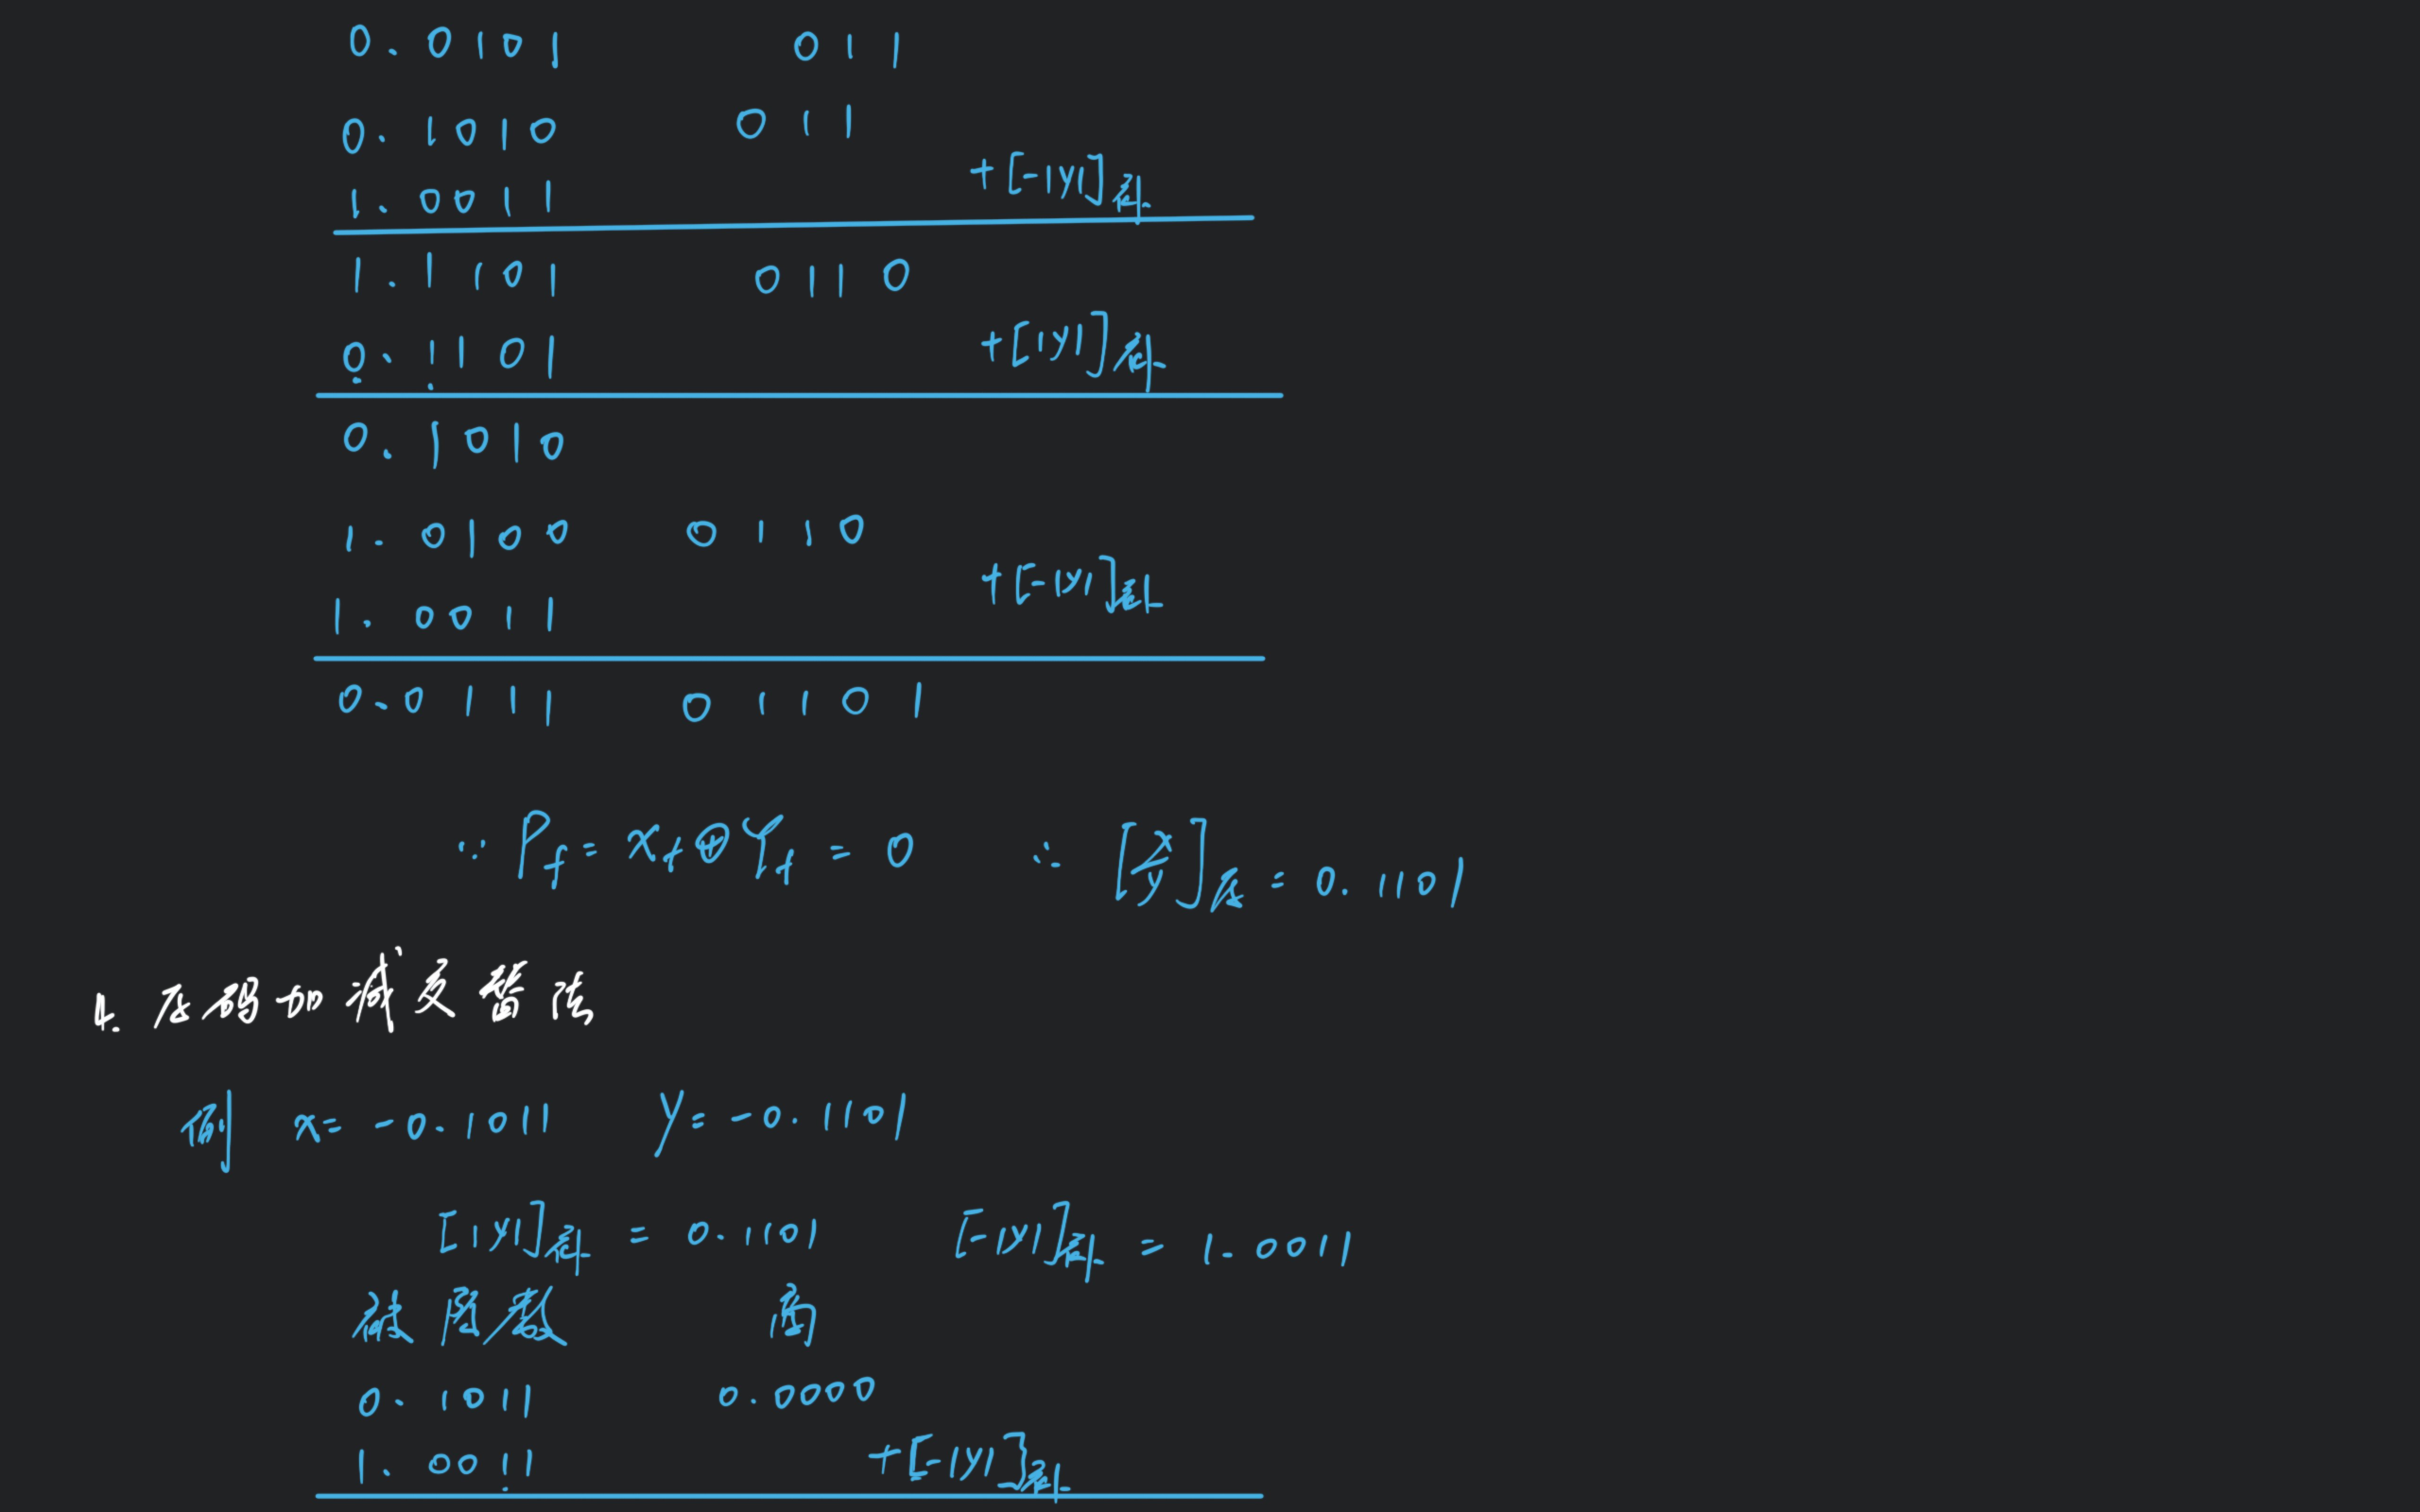 0.0101 011
0.1010 011
1.0011 +[-|y|]补
1.1101 0110
0.1101 +[|y|]补
0.1010
1.0100 0110
1.0011 +[-|y|]补
0.0111 01101
∵ Pf = xf⊕yf = 0 ∴ [x/y]原 = 0.1101
4. 原码加减交替法
例 x=-0.1011 y=-0.1101
[|y|]补 = 0.1101 [-|y|]补 = 1.0011
被除数 商
0.1011 0.0000
1.0011 +[-|y|]补